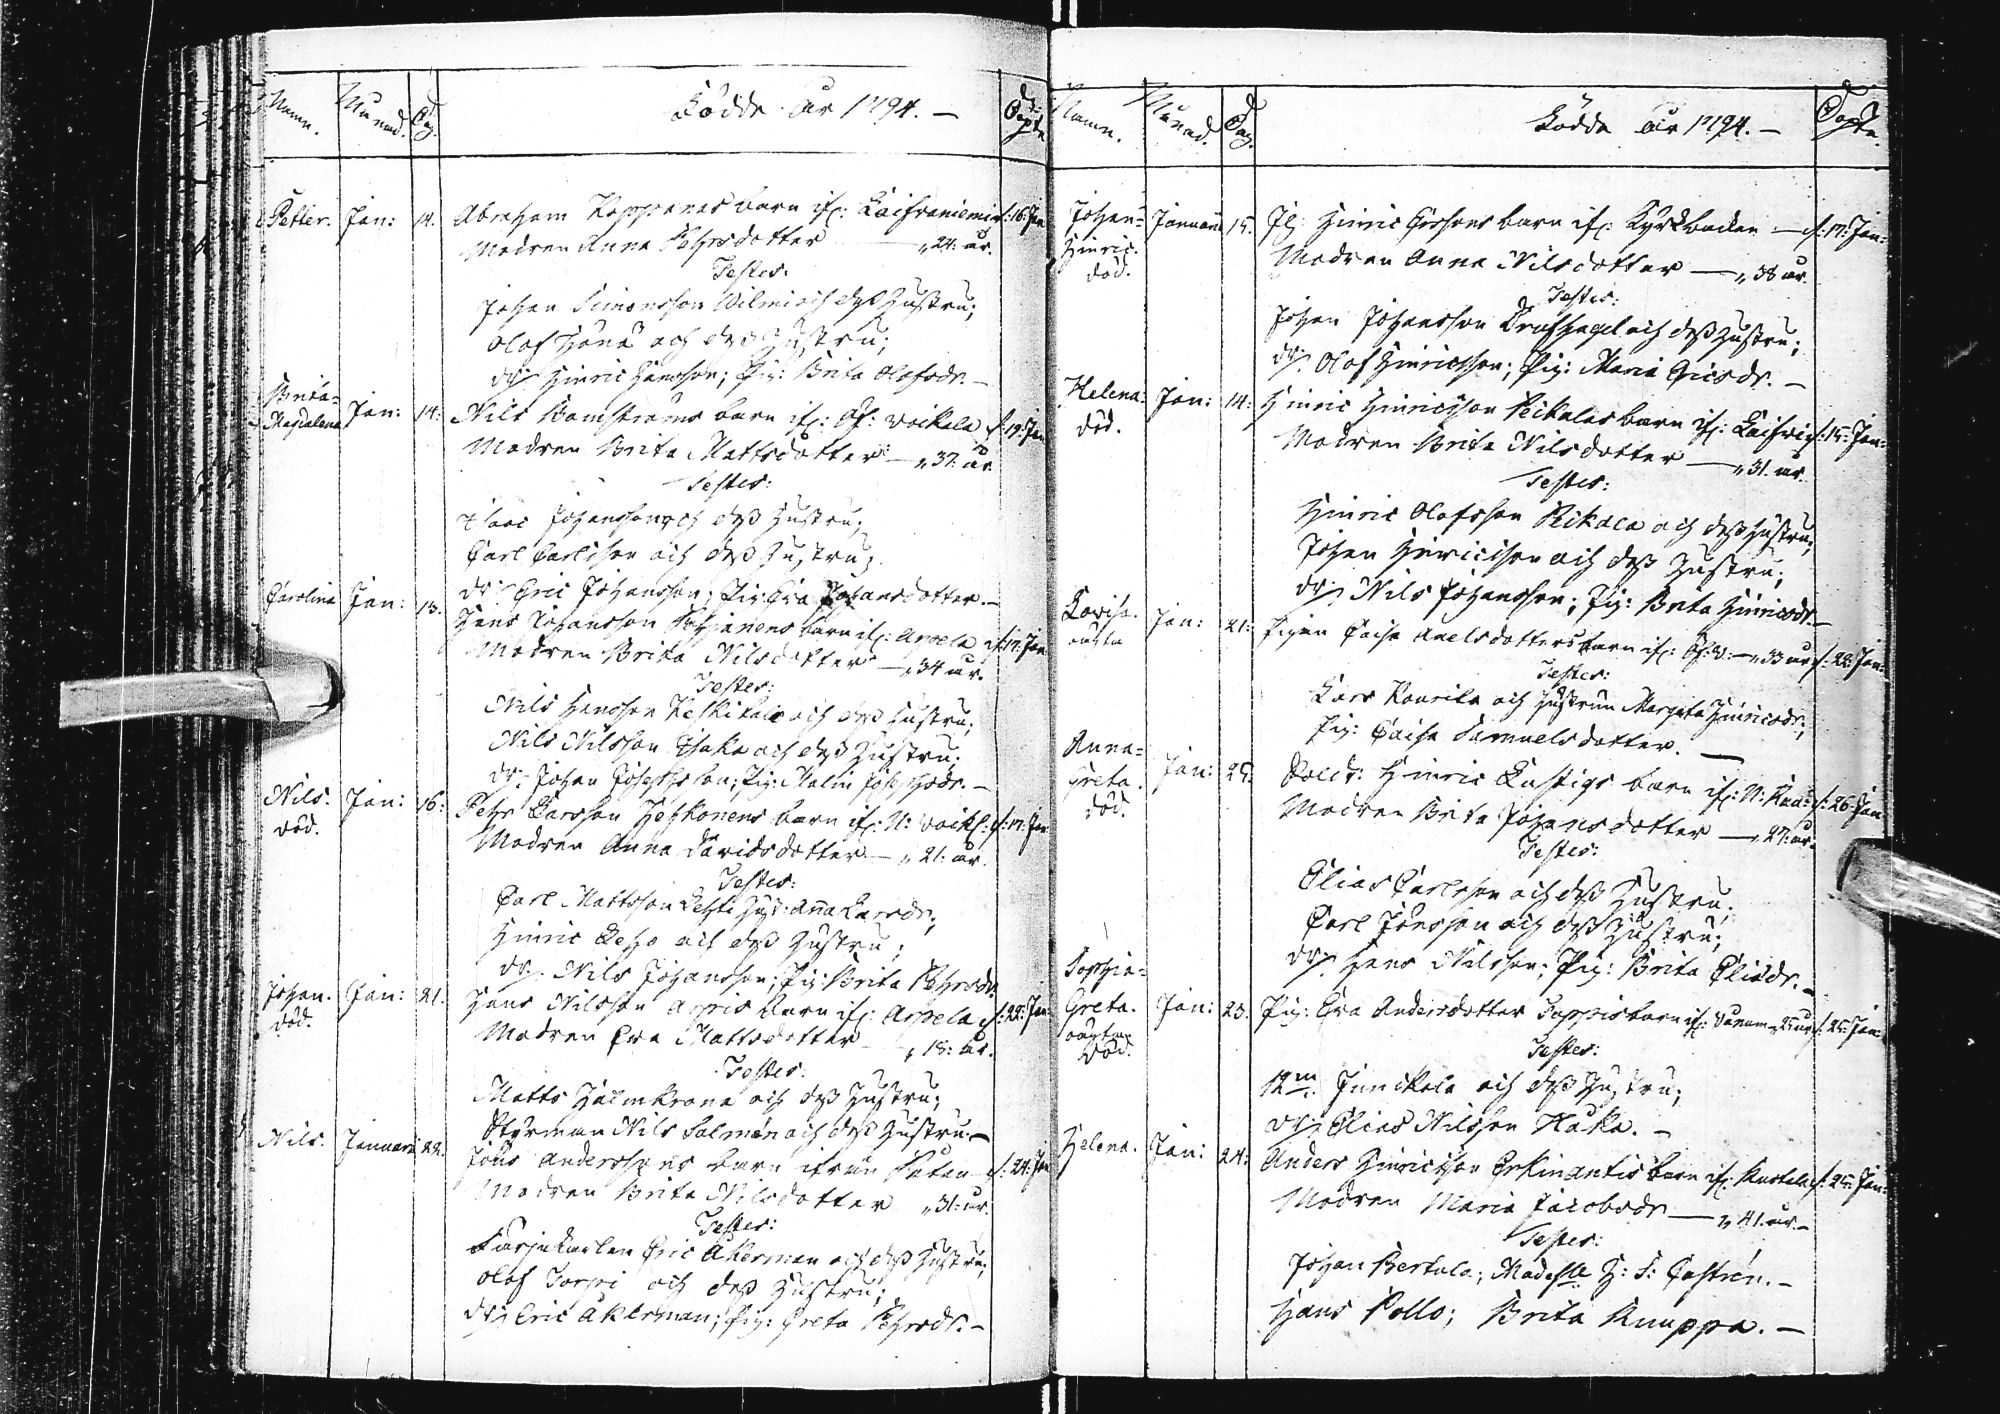 Namn. Månad. Dag. Födde år 1794. — Döpte
Petter. Jan: 14. Abraham Koppanas barn ifr: Laifraniemi d: 16. Jan
Modren Anna Pehrsdotter — „ 24: år.
Testes:
Johan Simonsson Wilmi och deß Hustru;
Olof och deß Hustru;
dr: Hinric Hansson; Pig: Brita Olofsdr. —
Brita-Magdalena Jan: 14: Nils Bomströms barn ifr: Öf: Voikala d: 19. Jan
Modren Brita Mattsdotter — „ 37: år
Testes:
Isaac Johansson och deß Hustru;
Carl Carlsson och deß Hustru;
dr: Eric Johansson; Pig: Eva Johansdotter. —
Carolina Jan: 13. Hans Johansson barn ifr: Arpela d: 17: Jan
Modren Brita Nilsdotter — „ 34 år.
Testes:
Nils Hansson Keskikalo och deß Hustru;
Nils Nilsson och deß Hustru;
dr: Johan Josephsson; Pig: Malin Josephsdr. —
Nils. död. Jan: 16: Pehr Larsson barn ifr: N: Voik: d: 17: Jan
Modren Anna Davidsdotter — „ 21: år.
Testes:
Carl Mattsson Hust: Anna Larsdr;
Hinric och deß Hustru;
dr: Nils Johansson; Pig: Brita Pehrsdr.
Johan. död. Jan: 21. Hans Nilsson barn ifr: Arpela d: 22: Jan:
Modren Eva Mattsdotter „ 18: år.
Testes:
Matts Hjelmkrona och deß Hustru;
Styrman Nils Salmén och deß Hustru. —
Nils. Januarii 22. Jöns Anderssons barn ifrån d: 24. Jan
Modren Brita Nilsdotter „ 31: år.
Testes:
Färjekarlen Eric Åkerman och deß Hustru;
Olof Torpi och deß Hustru;
dr: Eric Åkerman; Pig: Greta Pehrsdr. —
Namn. Månad. Dag. Födde år 1794. — Döpte.
Johan-Hinric. död. Januarii 15. Hinric barn ifr: Kyrkbacken — d: 17: Jan:
Modren Anna Nilsdotter — „ 38 år.
Testes:
Johan Johansson och deß Hustru;
dr: Olof Hinricsson; Pig: Maria Ericsdr. —
Helena: död. Jan: 14: Hinric Hinricsson barn ifr: d: 15: Jan:
Modren Brita Nilsdotter — „ 31. år.
Testes:
Hinric Olofsson och deß Hustru;
Johan Hinricsson och deß Hustru;
dr: Nils Johansson; Pig: Brita Hinricsdr. —
Lovisa. oägta Jan: 21: Pigan Caisa Axelsdotters barn ifr: Öf: V: — „ 33 år d: 22: Jan:
Testes:
Lars Kaurila och Hustrun Margeta Hinricsdr;
Pig: Caisa Samuelsdotter. —
Anna-Greta. död. Jan: 25. Sold: Hinric Lustigs barn ifr: d: 26. Jan
Modren Brita Johansdotter — „ 27: år.
Testes:
Elias Carlsson och deß Hustru.
Carl Jönsson och deß Hustru;
dr: Hans Nilsson; Pig: Brita Eliædr. —
Sophia-Greta. oägta. död. Jan: 23. Pig: Eva Andersdotter barn ifr: „ 25 år d: 25: Jan:
Testes:
och deß Hustru;
dr: Elias Nilsson Haka. —
Helena. Jan: 24: Anders Hinricsson Erkinanttis barn ifr: d: 25: Jan:
Modren Maria Jacobsdr — „ 41. år. —
Testes:
Johan Bertula; Madesle H: S: Castrén. —
Hans Pollo; Brita Knuppa. —